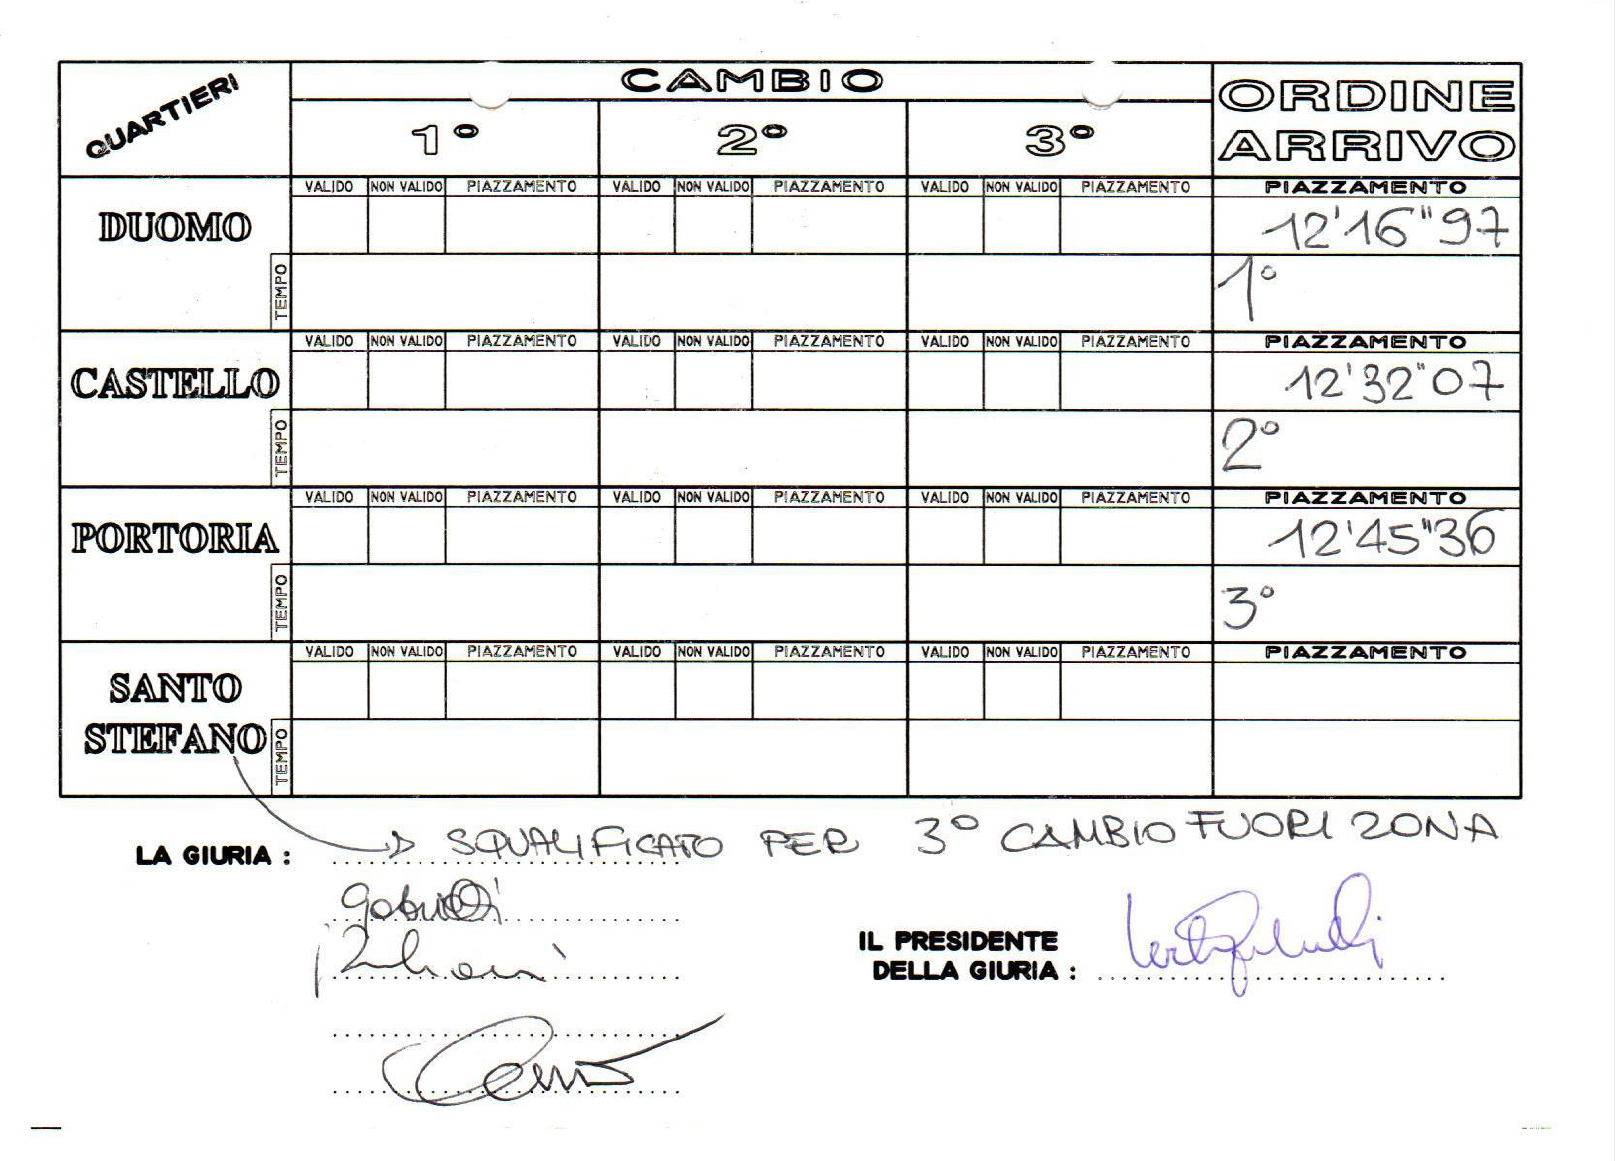 QUARTIERI
CAMBIO
ORDINE
ARRIVO
1º 2º 3º
VALIDO NON VALIDO PIAZZAMENTO VALIDO NON VALIDO PIAZZAMENTO VALIDO NON VALIDO PIAZZAMENTO PIAZZAMENTO
DUOMO 12'16"97
TEMPO 1º
VALIDO NON VALIDO PIAZZAMENTO VALIDO NON VALIDO PIAZZAMENTO VALIDO NON VALIDO PIAZZAMENTO PIAZZAMENTO
CASTELLO 12'32"07
TEMPO 2º
VALIDO NON VALIDO PIAZZAMENTO VALIDO NON VALIDO PIAZZAMENTO VALIDO NON VALIDO PIAZZAMENTO PIAZZAMENTO
PORTORIA 12'45"36
TEMPO 3º
VALIDO NON VALIDO PIAZZAMENTO VALIDO NON VALIDO PIAZZAMENTO VALIDO NON VALIDO PIAZZAMENTO PIAZZAMENTO
SANTO
STEFANO
TEMPO
SQUALIFICATO PER 3º CAMBIO FUORI ZONA
LA GIURIA :
IL PRESIDENTE
DELLA GIURIA :